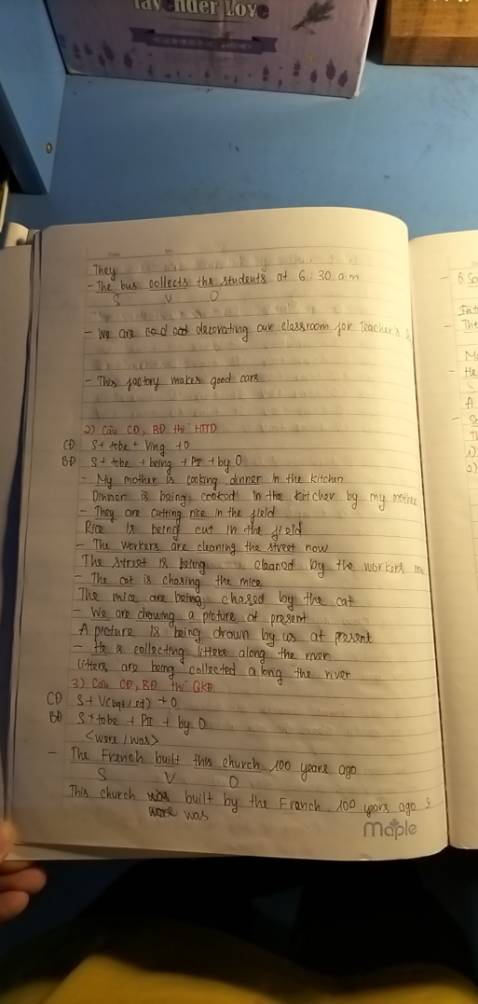 lavender Love
They
- The bus collects the students at 6:30 a.m
S V O
- We are decorating our classroom for Teacher's
- This factory makes good cars
2) Câu CĐ, BĐ thì HTTD
CĐ S + tobe + Ving + O
BĐ S + tobe + being + PII + by O
- My mother is cooking dinner in the kitchen
Dinner is being cooked in the kitchen by my mother
- They are cutting rice in the field
Rice is being cut in the field
- The workers are cleaning the street now
The street is being cleaned by the workers
- The cat is chasing the mice
The mice are being chased by the cat
- We are drawing a picture at present
A picture is being drawn by us at present
- He is collecting litters along the river
litters are being collected along the river
3) Câu CĐ, BĐ thì QKĐ
CĐ S + V(bqt/ed) + O
BĐ S + tobe + PII + by O
<were/was>
- The French built this church 100 years ago
S V O
This church was built by the Franch 100 years ago
were was
Maple
- 6
- The
- He
A
1)
2)